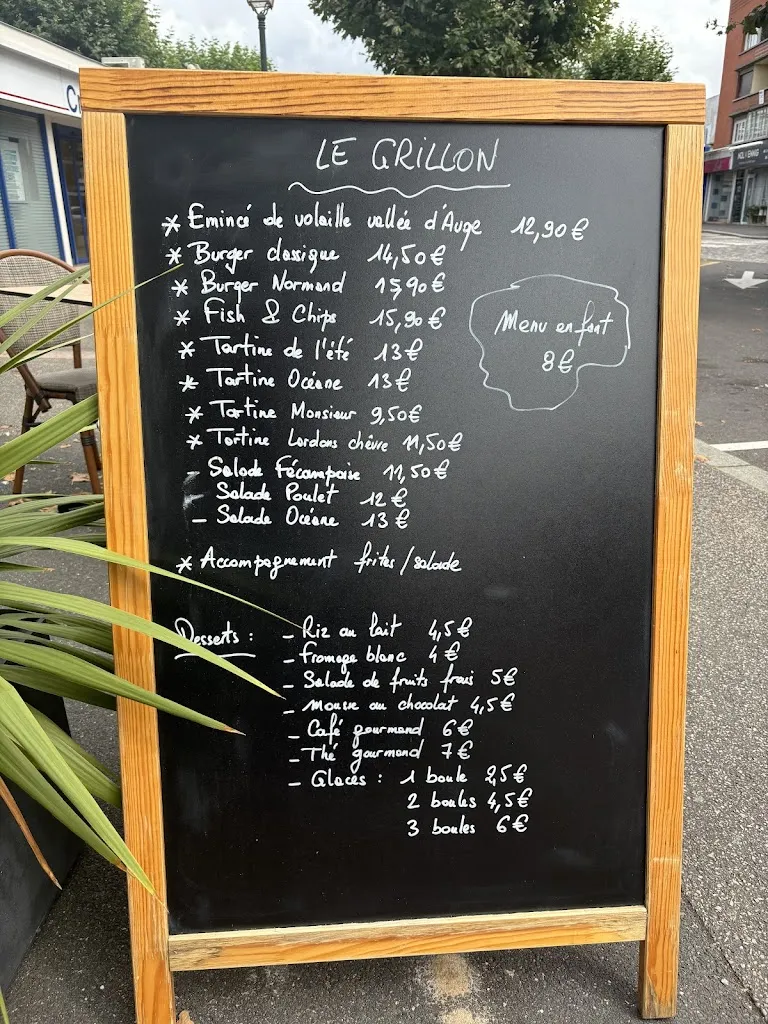 LE GRILLON
* Emincé de volaille vallée d'Auge 12,90€
* Burger classique 14,50€
* Burger Normand 15,90€
* Fish & Chips 15,90€
* Tartine de l'été 13€
* Tartine Océane 13€
* Tartine Monsieur 9,50€
* Tartine Lardons chèvre 11,50€
- Salade Fécampoise 11,50€
- Salade Poulet 12€
- Salade Océane 13€
Menu enfant
8€
* Accompagnement frites/salade
Desserts :
- Riz au lait 4,5€
- Fromage blanc 4€
- Salade de fruits frais 5€
- Mousse au chocolat 4,5€
- Café gourmand 6€
- Thé gourmand 7€
- Glaces : 1 boule 2,5€
2 boules 4,5€
3 boules 6€